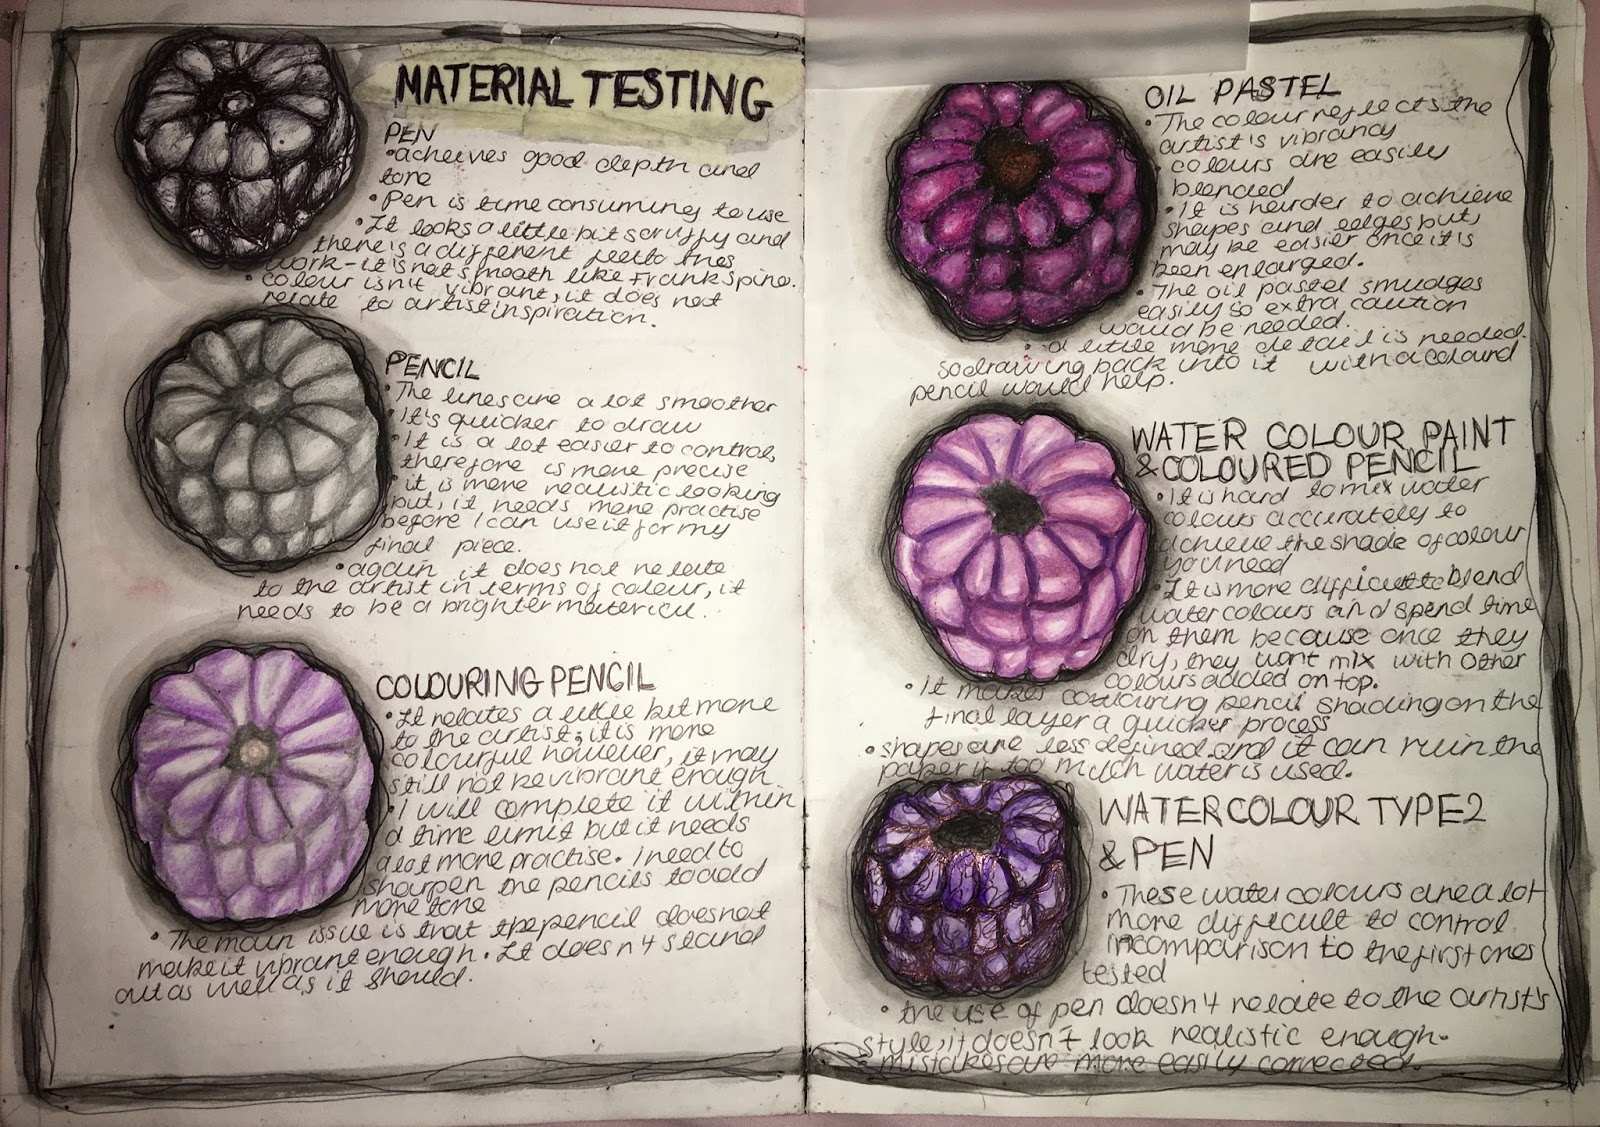 MATERIAL TESTING
PEN
•acheives good depth and
tone
•Pen is time consuming to use
•It looks a little bit scruffy and
there's a different feel to lines
work - it is not smooth like Frank Spino.
• colour isn't vibrant, it does not
relate to artist inspiration.
PENCIL
•The lines are a lot smoother
•It's quicker to draw
•It is a lot easier to control,
therefore is more precise
•it is more realistic looking
but, it needs more practise
before I can use it for my
final piece.
•again it does not relate
to the artist in terms of colour, it
needs to be a brighter material.
COLOURING PENCIL
•It relates a little bit more
to the artist, it is more
colourful however, it may
still not be vibrant enough
•I will complete it within
a time limit but it needs
a lot more practise. I need to
sharpen the pencils to add
more tone
•The main issue is that the pencil does not
make it vibrant enough. It doesn't stand
out as well as it should.
OIL PASTEL
•The colour reflects the
artist's vibrancy
•colours are easily
blended
•It is harder to achieve
shapes and edges but,
may be easier once it is
been enlarged.
•The oil pastel smudges
easily so extra caution
would be needed.
• a little more detail is needed
so drawing back into it with a coloured
pencil would help.
WATER COLOUR PAINT
& COLOURED PENCIL
•It is hard to mix water
colours accurately to
achieve the shade of colour
you need
•It is more difficult to blend
water colours and spend time
on them because once they
dry, they wont mix with other
colours added on top.
•It makes colouring pencil shading on the
final layer a quicker process
•shapes are less defined and it can ruin the
paper if too much water is used.
WATERCOLOUR TYPE 2
& PEN
•These water colours are a lot
more difficult to control
in comparison to the first ones
tested
•the use of pen doesn't relate to the artist's
style, it doesn't look realistic enough.
•mistakes are more easily corrected.